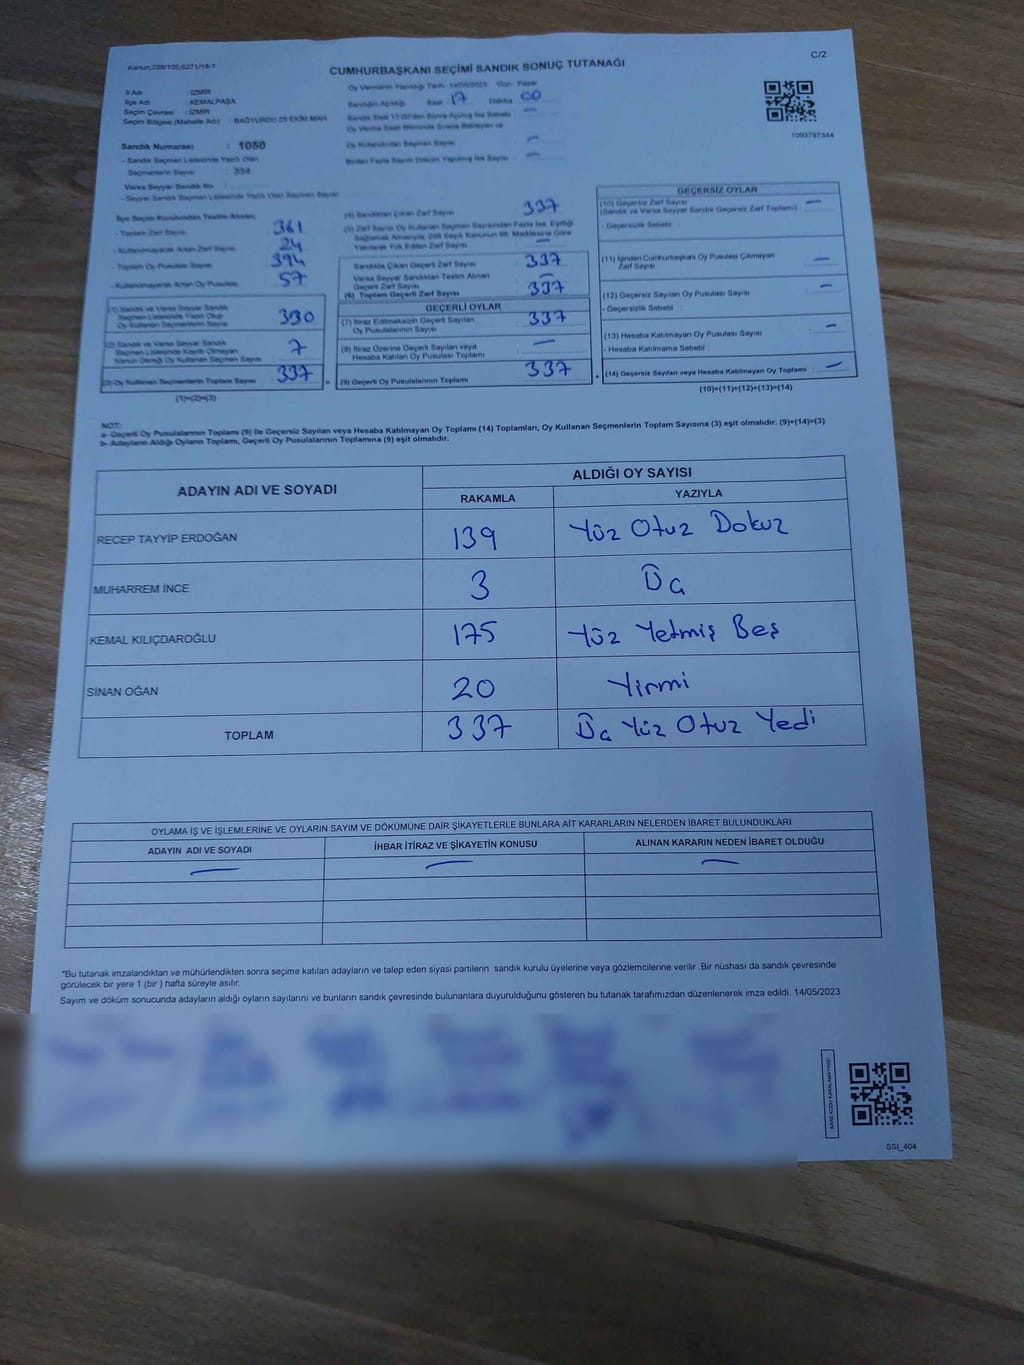 Kanun:298/105,6271/18-1
C/2
CUMHURBAŞKANI SEÇİMİ SANDIK SONUÇ TUTANAĞI
İl Adı : İZMİR
İlçe Adı : KEMALPAŞA
Seçim Çevresi : İZMİR
Seçim Bölgesi (Mahalle Adı) : BAĞYURDU 29 EKİM MAH.
Sandık Numarası : 1050
- Sandık Seçmen Listesinde Yazılı Olan
Seçmenlerin Sayısı : 354
Varsa Seyyar Sandık No :
- Seyyar Sandık Seçmen Listesinde Yazılı Olan Seçmen Sayısı :
Oy Vermenin Yapıldığı Tarih : 14/05/2023 Gün : Pazar
Sandığın Açıldığı Saat : 17 Dakika : 00
Sandık Saat 17:00'den Sonra Açılmış İse Sebebi : —
Oy Verme Saati Bitiminde Sırada Bekleyen ve
Oy Kullandırılan Seçmen Sayısı : —
Birden Fazla Sayım Döküm Yapılmış İse Sayısı : —
1093797344
İlçe Seçim Kurulundan Teslim Alınan;
- Toplam Zarf Sayısı 361
- Kullanılmayarak Artan Zarf Sayısı 24
- Toplam Oy Pusulası Sayısı 394
- Kullanılmayarak Artan Oy Pusulası 57
(1) Sandık ve Varsa Seyyar Sandık
Seçmen Listesinde Yazılı Olup
Oy Kullanan Seçmenlerin Sayısı 330
(2) Sandık ve Varsa Seyyar Sandık
Seçmen Listesinde Kayıtlı Olmayan
Kanun Gereği Oy Kullanan Seçmen Sayısı 7
(3) Oy Kullanan Seçmenlerin Toplam Sayısı 337
(1)+(2)=(3)
(4) Sandıktan Çıkan Zarf Sayısı 337
(5) Zarf Sayısı Oy Kullanan Seçmen Sayısından Fazla İse, Eşitliği
Sağlamak Amacıyla, 298 Sayılı Kanunun 98. Maddesine Göre
Yakılarak Yok Edilen Zarf Sayısı —
Sandıkta Çıkan Geçerli Zarf Sayısı 337
Varsa Seyyar Sandıktan Teslim Alınan
Geçerli Zarf Sayısı —
(6) Toplam Geçerli Zarf Sayısı 337
GEÇERLİ OYLAR
(7) İtiraz Edilmeksizin Geçerli Sayılan
Oy Pusulalarının Sayısı 337
(8) İtiraz Üzerine Geçerli Sayılan veya
Hesaba Katılan Oy Pusulası Toplamı —
= (9) Geçerli Oy Pusulalarının Toplamı 337
GEÇERSİZ OYLAR
(10) Geçersiz Zarf Sayısı —
(Sandık ve Varsa Seyyar Sandık Geçersiz Zarf Toplamı) :
- Geçersizlik Sebebi :
(11) İçinden Cumhurbaşkanı Oy Pusulası Çıkmayan
Zarf Sayısı —
(12) Geçersiz Sayılan Oy Pusulası Sayısı —
- Geçersizlik Sebebi :
(13) Hesaba Katılmayan Oy Pusulası Sayısı —
- Hesaba Katılmama Sebebi :
+ (14) Geçersiz Sayılan veya Hesaba Katılmayan Oy Toplamı : —
(10)+(11)+(12)+(13)=(14)
NOT:
a- Geçerli Oy Pusulalarının Toplamı (9) ile Geçersiz Sayılan veya Hesaba Katılmayan Oy Toplamı (14) Toplamları, Oy Kullanan Seçmenlerin Toplam Sayısına (3) eşit olmalıdır. (9)+(14)=(3)
b- Adayların Aldığı Oyların Toplamı, Geçerli Oy Pusulalarının Toplamına (9) eşit olmalıdır.
ADAYIN ADI VE SOYADI
ALDIĞI OY SAYISI
RAKAMLA YAZIYLA
RECEP TAYYİP ERDOĞAN 139 Yüz Otuz Dokuz
MUHARREM İNCE 3 Üç
KEMAL KILIÇDAROĞLU 175 Yüz Yetmiş Beş
SİNAN OĞAN 20 Yirmi
TOPLAM 337 Üç Yüz Otuz Yedi
OYLAMA İŞ VE İŞLEMLERİNE VE OYLARIN SAYIM VE DÖKÜMÜNE DAİR ŞİKAYETLERLE BUNLARA AİT KARARLARIN NELERDEN İBARET BULUNDUKLARI
ADAYIN ADI VE SOYADI İHBAR İTİRAZ VE ŞİKAYETİN KONUSU ALINAN KARARIN NEDEN İBARET OLDUĞU
— — —
"Bu tutanak imzalandıktan ve mühürlendikten sonra seçime katılan adayların ve talep eden siyasi partilerin sandık kurulu üyelerine veya gözlemcilerine verilir .Bir nüshası da sandık çevresinde
görülecek bir yere 1 (bir ) hafta süreyle asılır.
Sayım ve döküm sonucunda adayların aldığı oyların sayılarını ve bunların sandık çevresinde bulunanlara duyurulduğunu gösteren bu tutanak tarafımızdan düzenlenerek imza edildi. 14/05/2023
KARE KODU KARALAMAYINIZ!
SSI_404